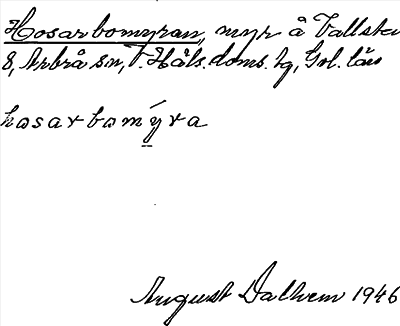 Hosarbomyran, myr å Vallsta
8, Arbrå sn, V. Häls. doms. hg, Gvl. län
hosarbomýra
August Dalhem 1946